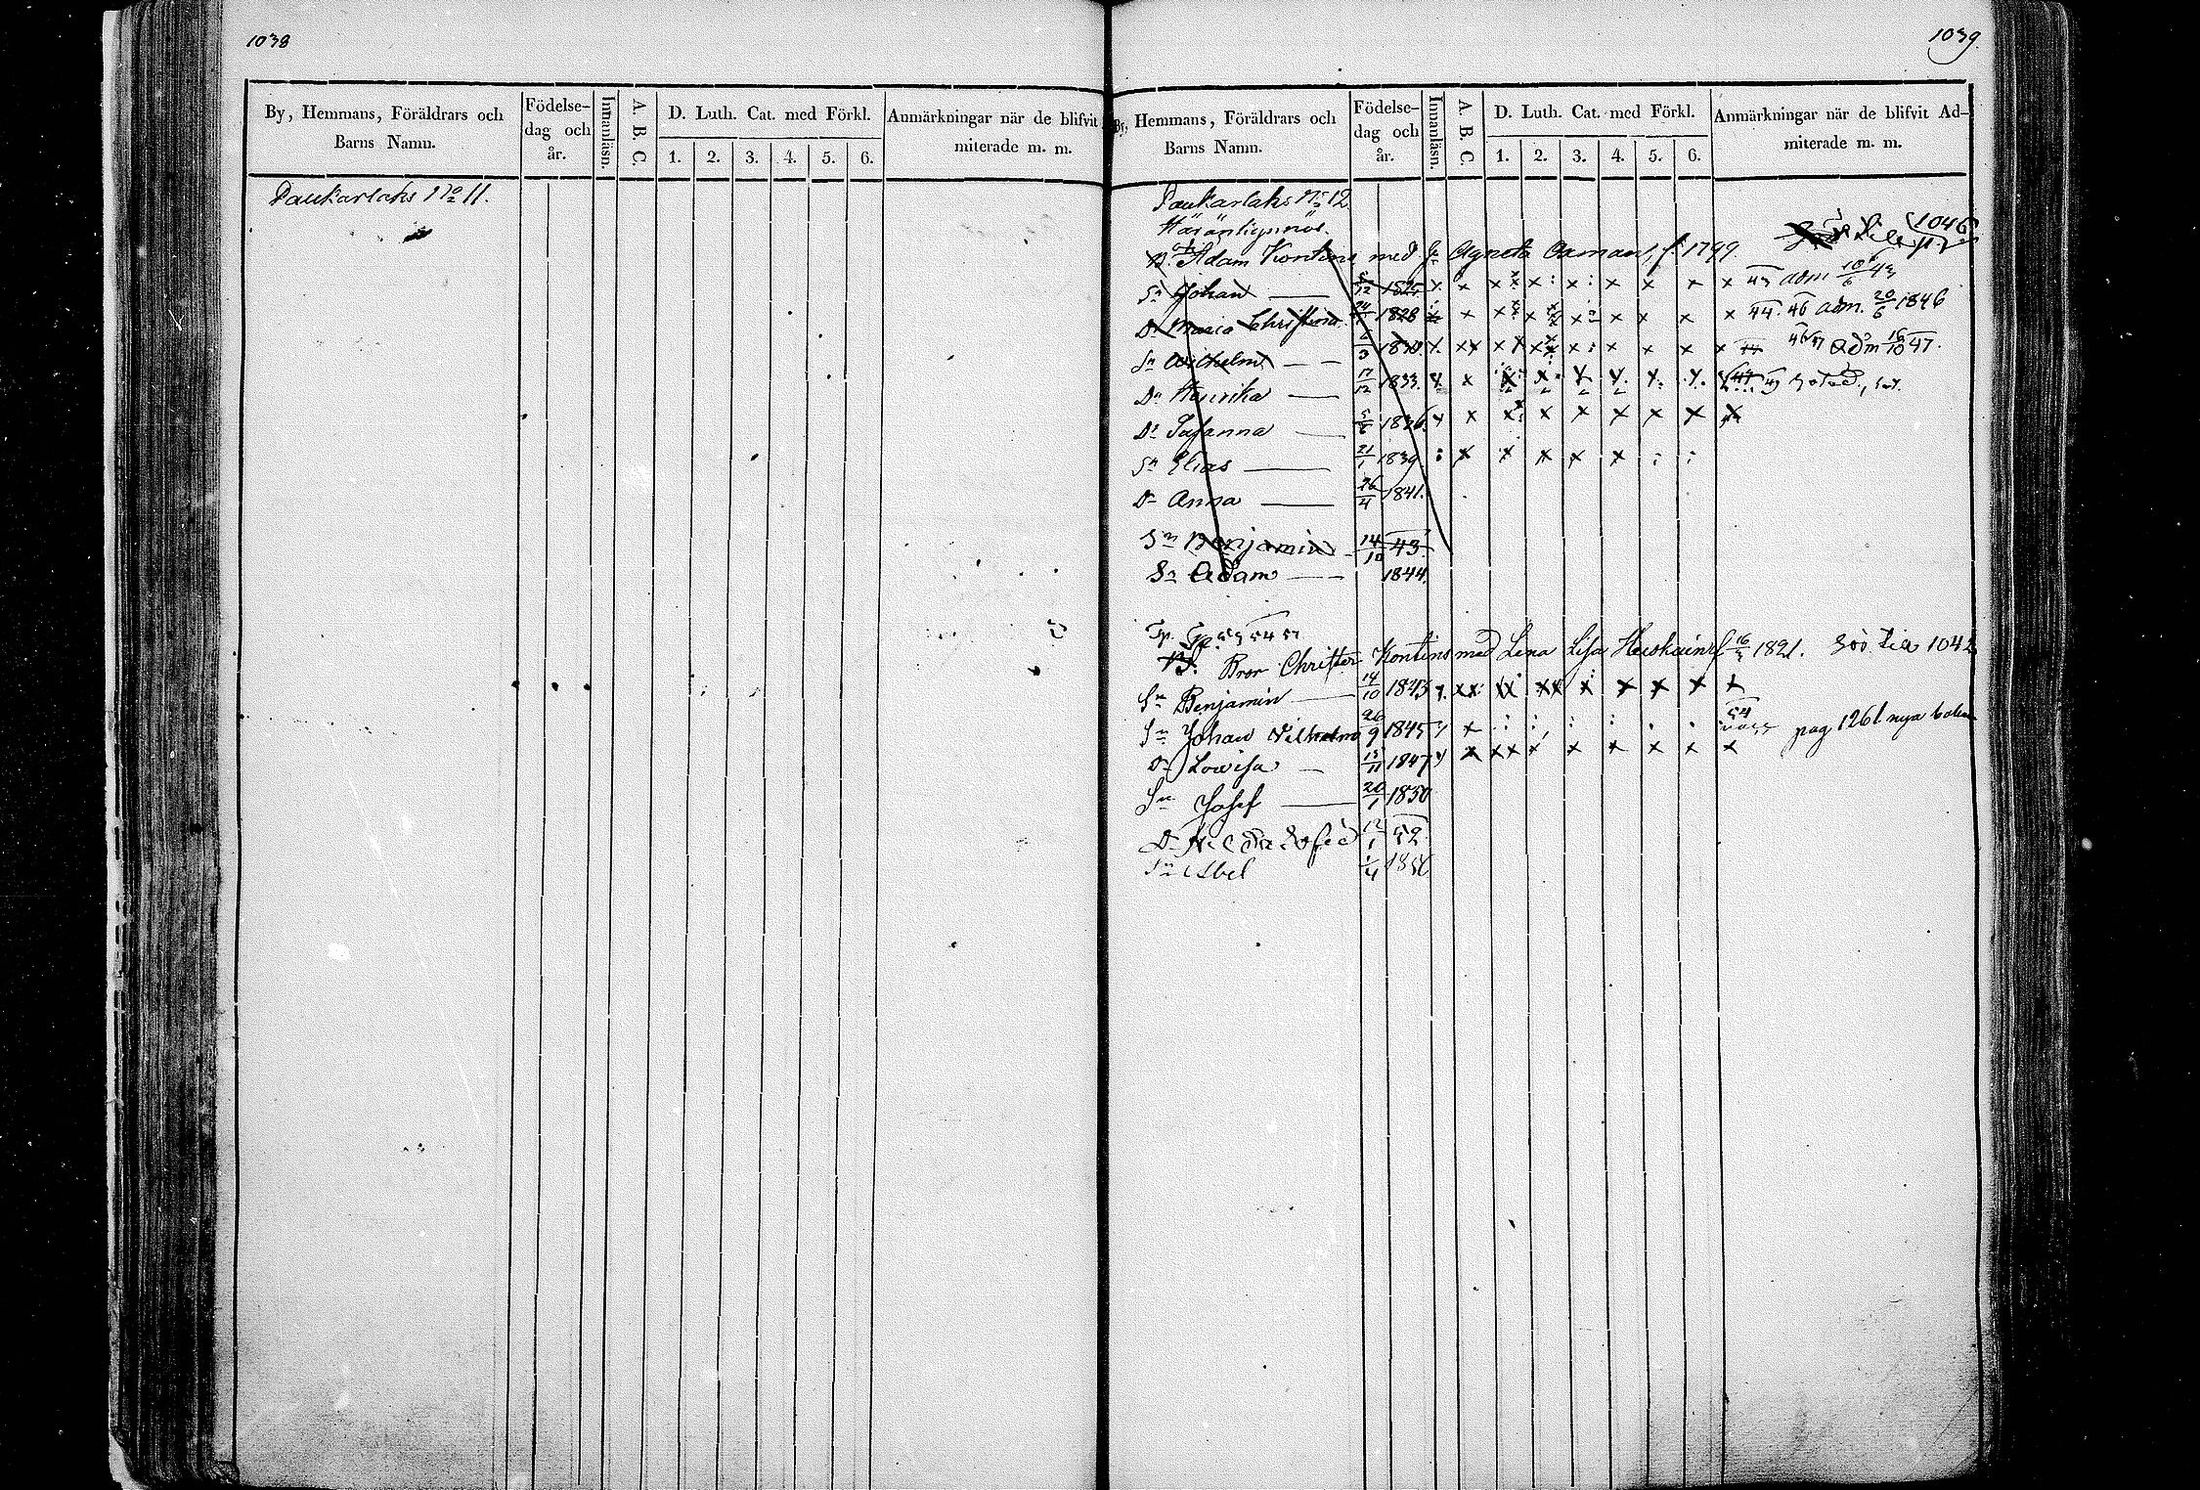 1038
By, Hemmans, Föräldrars och Barns Namn.
Födelse-dag och år.
Innanläsn.
A. B. C.
D. Luth. Cat. med Förkl.
1. 2. 3. 4. 5. 6.
Anmärkningar när de blifvit
miterade m. m.
Paukarlaks No 11.
1039.
By, Hemmans, Föräldrars och Barns Namn.
Födelse-dag och år.
Innanläsn.
A. B. C.
D. Luth. Cat. med Förkl.
1. 2. 3. 4. 5. 6.
Anmärkningar när de blifvit Ad-
miterade m. m.
Paukarlaks No 12.
1046
B. Adam Kontins med h. Agneta Oxman, f. 1799
Sn Johan 5/12 1825 x x x x x x x x x 43 adm 10/6 43
Dr Maria Christina 24/1 1828 x x x x x x x x 44. 46 adm. 20/6 1846
Sn Wilhelm 6/3 1830 x xx x x x x x x x x 46 47 Adm 16/10 47.
Dr Henrika 17/12 1833 x x x x x x x x
Dr Susanna 5/8 1836 x x x x x x x x x
Sn Elias 21/1 1839 : x x x x x : :
Dr Anna 26/4 1841.
Sn Benjamin 14/10 43.
Sn Adam 1844.
53 54 57
B. Bror Christer Kontins med Lena Lisa f 16/3 1821. 1042
Sn Benjamin 14/10 1843 x. xx: xx xx x x x x x
Sn Johan Vilhelm 26/9 1845 x x : : : : . . 54 pag 1261 nya boken
Dr Lowisa 15/11 1847 x x xx x x x x x x
Sn Josef 20/1 1850
Dr 12/1 52
Sn Abel 1/4 1856